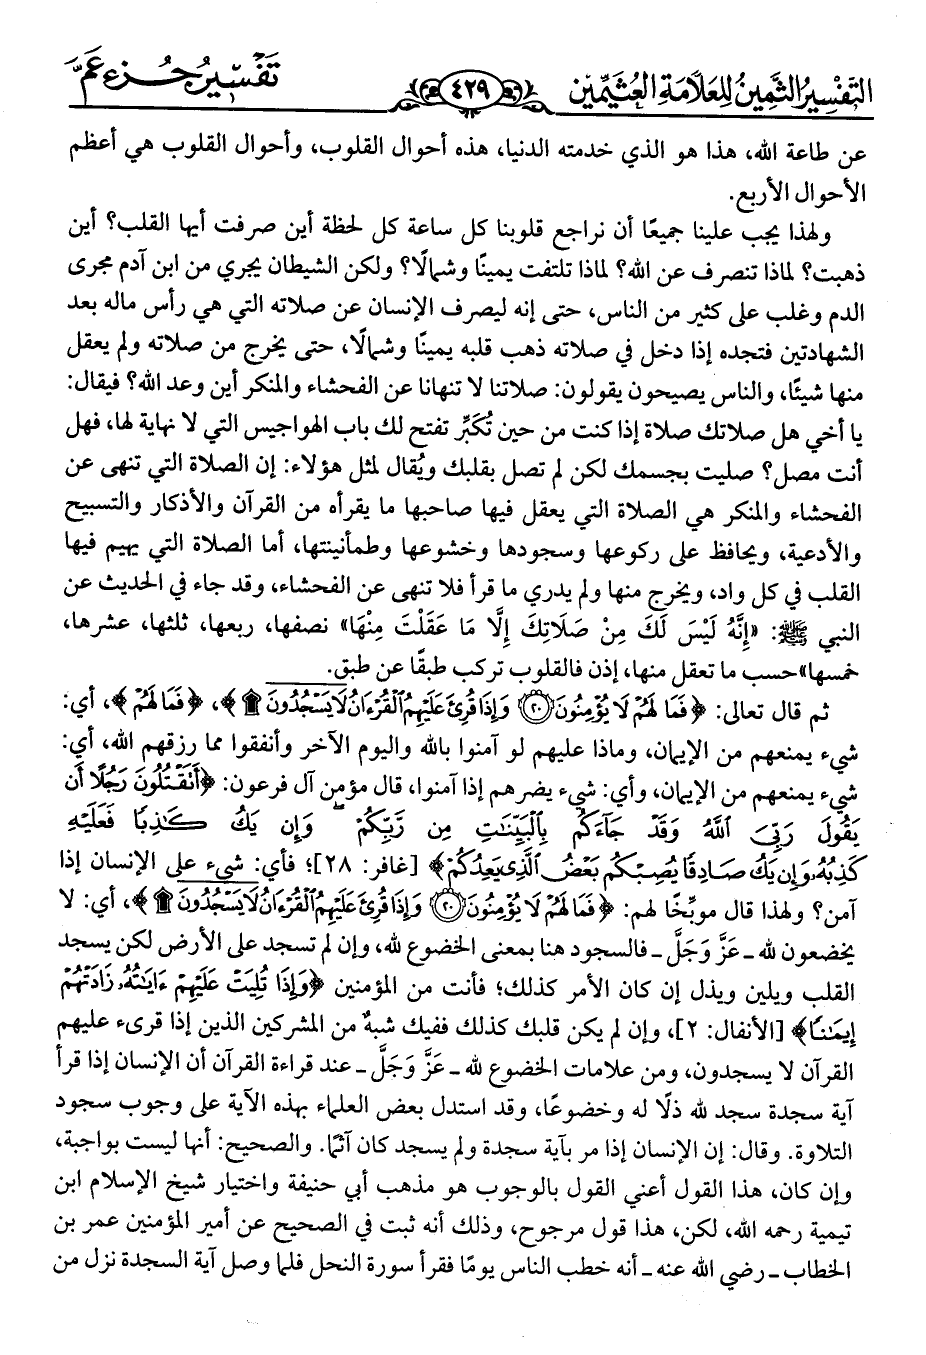 التفسير الثمين للعلامة العثيمين ٤٢٩ تفسير جزء عم
عن طاعة الله، هذا هو الذي خدمته الدنيا، هذه أحوال القلوب، وأحوال القلوب هي أعظم
الأحوال الأربع.
ولهذا يجب علينا جميعًا أن نراجع قلوبنا كل ساعة كل لحظة أين صرفت أيها القلب؟ أين
ذهبت؟ لماذا تنصرف عن الله؟ لماذا تلتفت يمينًا وشمالًا؟ ولكن الشيطان يجري من ابن آدم مجرى
الدم وغلب على كثير من الناس، حتى إنه ليصرف الإنسان عن صلاته التي هي رأس ماله بعد
الشهادتين فتجده إذا دخل في صلاته ذهب قلبه يمينًا وشمالًا، حتى يخرج من صلاته ولم يعقل
منها شيئًا، والناس يصيحون يقولون: صلاتنا لا تنهانا عن الفحشاء والمنكر أين وعد الله؟ فيقال:
يا أخي هل صلاتك صلاة إذا كنت من حين تُكَبِّر تفتح لك باب الهواجيس التي لا نهاية لها، فهل
أنت مصل؟ صليت بجسمك لكن لم تصل بقلبك ويُقال لمثل هؤلاء: إن الصلاة التي تنهى عن
الفحشاء والمنكر هي الصلاة التي يعقل فيها صاحبها ما يقرأه من القرآن والأذكار والتسبيح
والأدعية، ويحافظ على ركوعها وسجودها وخشوعها وطمأنينتها، أما الصلاة التي يهيم فيها
القلب في كل واد، ويخرج منها ولم يدري ما قرأ فلا تنهى عن الفحشاء، وقد جاء في الحديث عن
النبي ﷺ: «إِنَّهُ لَيْسَ لَكَ مِنْ صَلَاتِكَ إِلَّا مَا عَقَلْتَ مِنْهَا» نصفها، ربعها، ثلثها، عشرها،
خمسها»حسب ما تعقل منها، إذن فالقلوب تركب طبقًا عن طبق.
ثم قال تعالى: ﴿فَمَا لَهُمْ لَا يُؤْمِنُونَ ۝٢٠ وَإِذَا قُرِئَ عَلَيْهِمُ ٱلْقُرْءَانُ لَا يَسْجُدُونَ ۩﴾، ﴿فَمَا لَهُمْ﴾، أي:
شيء يمنعهم من الإيمان، وماذا عليهم لو آمنوا بالله واليوم الآخر وأنفقوا مما رزقهم الله، أي:
شيء يمنعهم من الإيمان، وأي: شيء يضرهم إذا آمنوا، قال مؤمن آل فرعون: ﴿أَتَقْتُلُونَ رَجُلًا أَن
يَقُولَ رَبِّىَ ٱللَّهُ وَقَدْ جَآءَكُم بِٱلْبَيِّنَٰتِ مِن رَّبِّكُمْ ۖ وَإِن يَكُ كَٰذِبًا فَعَلَيْهِ
كَذِبُهُۥ وَإِن يَكُ صَادِقًا يُصِبْكُم بَعْضُ ٱلَّذِى يَعِدُكُمْ﴾ [غافر: ٢٨]؛ فأي: شيء على الإنسان إذا
آمن؟ ولهذا قال موبِّخًا لهم: ﴿فَمَا لَهُمْ لَا يُؤْمِنُونَ ۝٢٠ وَإِذَا قُرِئَ عَلَيْهِمُ ٱلْقُرْءَانُ لَا يَسْجُدُونَ ۩﴾، أي: لا
يخضعون لله ـ عَزَّ وَجَلَّ ـ فالسجود هنا بمعنى الخضوع لله، وإن لم تسجد على الأرض لكن يسجد
القلب ويلين ويذل إن كان الأمر كذلك؛ فأنت من المؤمنين ﴿وَإِذَا تُلِيَتْ عَلَيْهِمْ ءَايَٰتُهُۥ زَادَتْهُمْ
إِيمَٰنًا﴾ [الأنفال: ٢]، وإن لم يكن قلبك كذلك ففيك شبهٌ من المشركين الذين إذا قرىء عليهم
القرآن لا يسجدون، ومن علامات الخضوع لله ـ عَزَّ وَجَلَّ ـ عند قراءة القرآن أن الإنسان إذا قرأ
آية سجدة سجد لله ذلًا له وخضوعًا، وقد استدل بعض العلماء بهذه الآية على وجوب سجود
التلاوة. وقال: إن الإنسان إذا مر بآية سجدة ولم يسجد كان آثمًا. والصحيح: أنها ليست بواجبة،
وإن كان، هذا القول أعني القول بالوجوب هو مذهب أبي حنيفة واختيار شيخ الإسلام ابن
تيمية رحمه الله، لكن، هذا قول مرجوح، وذلك أنه ثبت في الصحيح عن أمير المؤمنين عمر بن
الخطاب ـ رضي الله عنه ـ أنه خطب الناس يومًا فقرأ سورة النحل فلما وصل آية السجدة نزل من